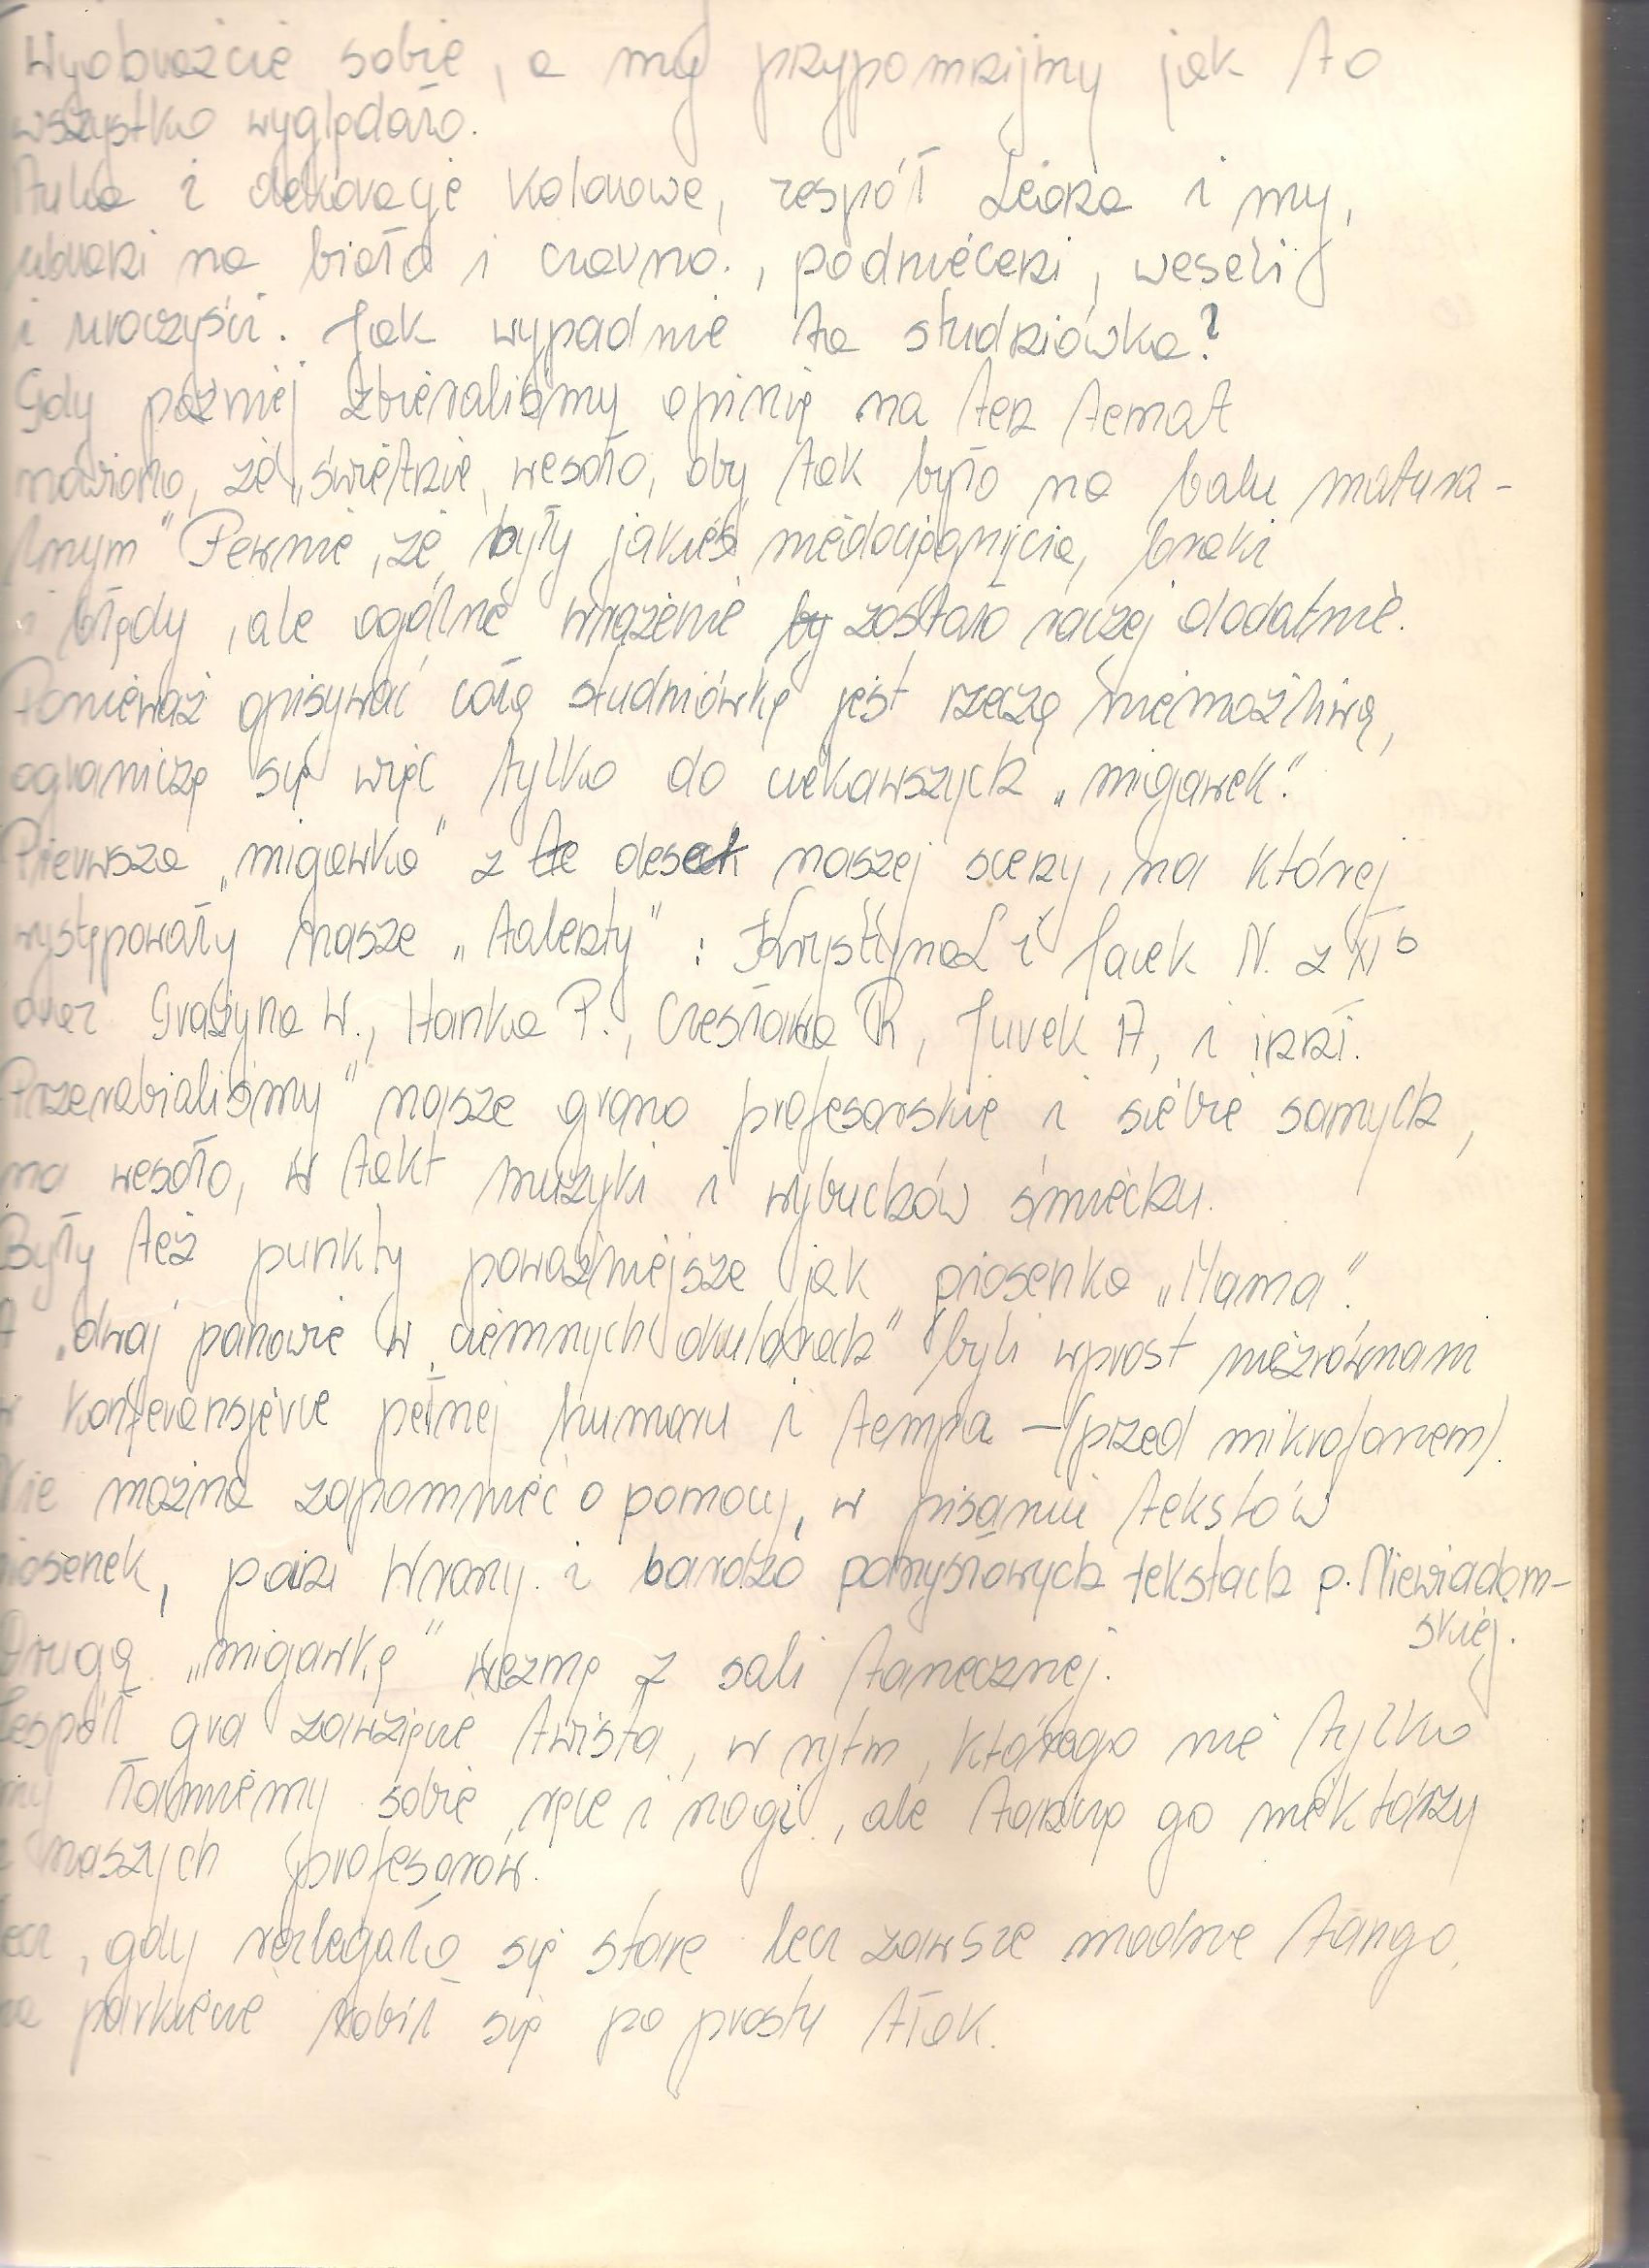 Wyobraźcie sobie, a my przypomnijmy jak to
wszystko wyglądało.
Aula i dekoracje kolorowe, zespół Leona i my,
ubrani na biało i czarno., podnieceni, weseli
i uroczyści. Jak wypadnie ta studniówka?
Gdy poźniej zbieraliśmy opinię na ten temat
mówiono, że „świetnie, wesoło, oby tak było na balu matura-
lnym" Pewnie, że były jakieś niedociągnięcia, braki
i błędy, ale ogólne wrażenie by zostało raczej dodatnie.
Ponieważ opisywać całą studniówkę jest rzeczą niemożliwą,
ograniczę się więc tylko do ciekawszych „migawek".
Pierwsza „migawka" z te desek naszej sceny, na której
występowały nasze „talenty": Krystyna L i Jacek N. z XI b
oraz Grażyna W., Hanka P., Czesława R, Jurek A, i inni.
Przerabialiśmy" nasze grono profesorskie i siebie samych,
na wesoło, w takt muzyki i wybuchów śmiechu.
Były też punkty poważniejsze jak piosenka „Mama".
A „dwaj panowie w ciemnych okularach" byli wprost niezrównani
w konferansjerce pełnej humoru i tempa – (przed mikrofonem).
Nie można zapomnieć o pomocy, w pisaniu tekstów
piosenek, pani Wrony i bardzo pomysłowych tekstach p. Niewiadom-
skiej.
Drugą „migawkę" wezmę z sali tanecznej.
Zespół gra zawzięcie twista, w rytm, którego nie tylko
my łamiemy sobie ręce i nogi, ale tańczą go niektórzy
z naszych profesorów.
Lecz, gdy rozlegało się stare lecz zawsze modne tango,
na parkiecie robił się po prostu tłok.